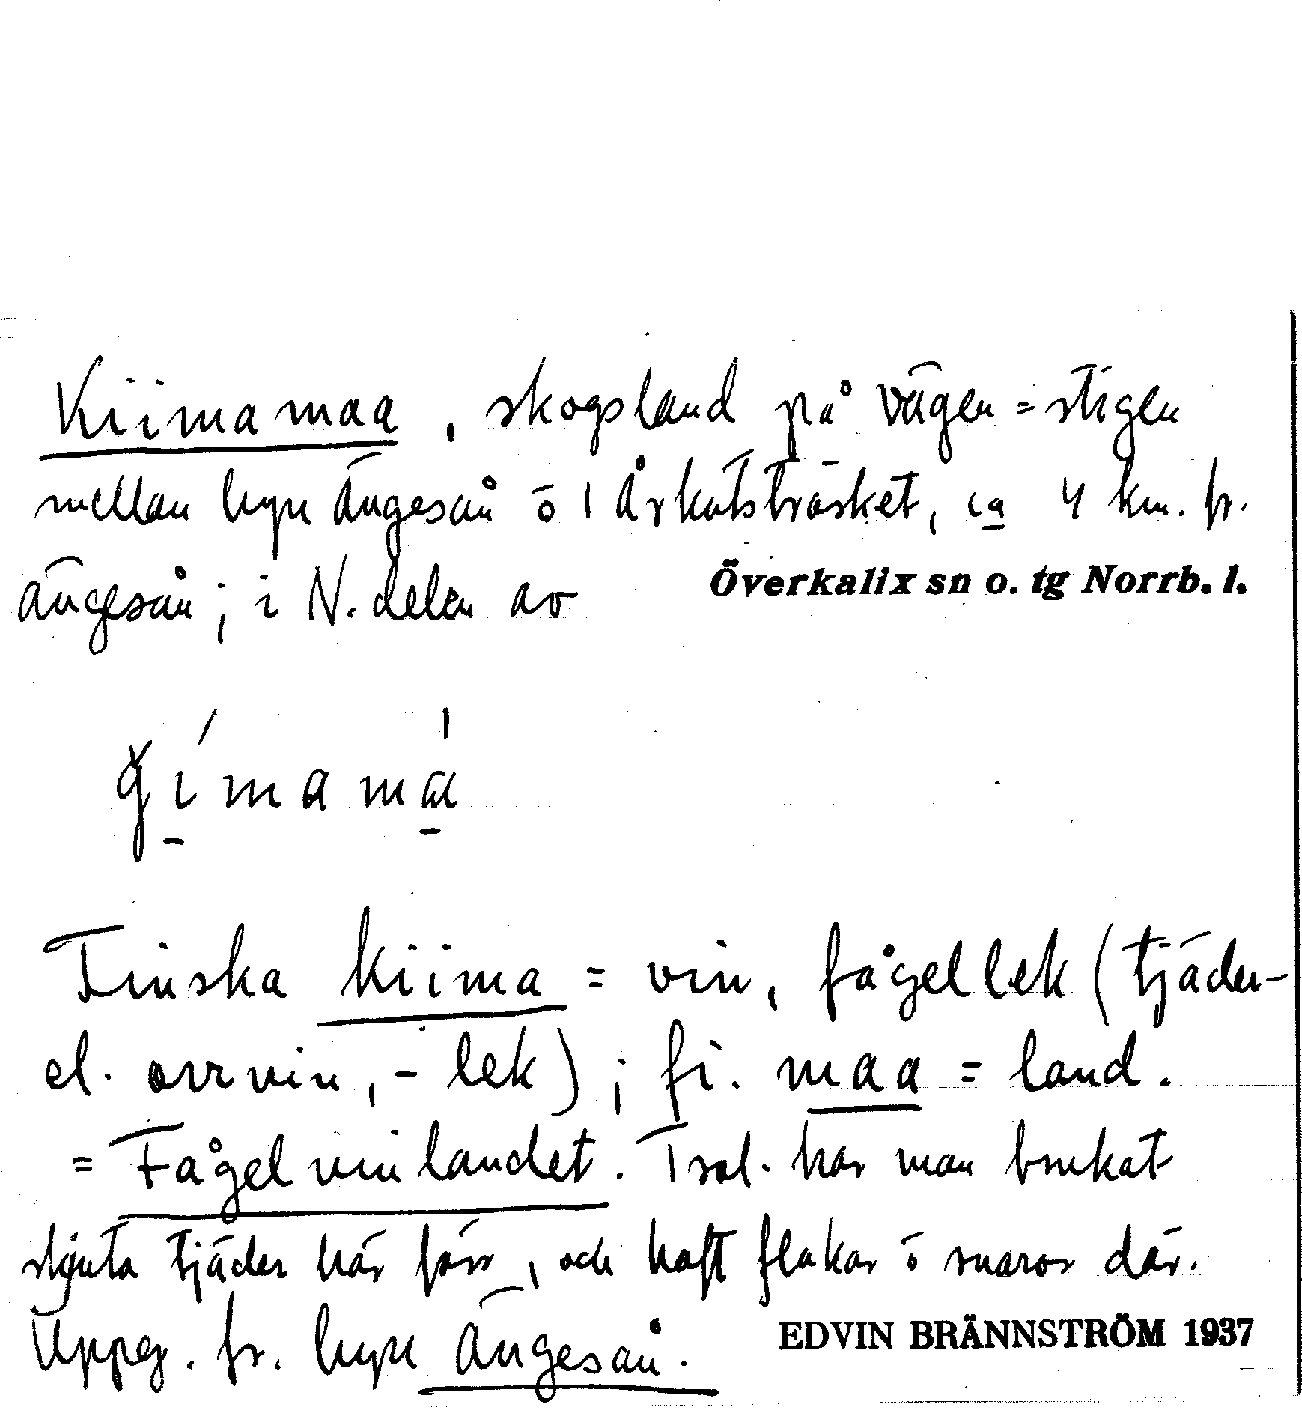 Kiimamaa, skogsland på vägen = stigen
mellan byn Ängesån o Årkutsträsket, ca 4 km. fr.
Ängesån; i N. delen av Överkalix sn o. tg Norrb. l.
Finska kiima = vin, fågellek (tjäder-
el. orrvin, - lek); fi. maa = land.
= Fågelvinlandet. Trol. har man brukat
skjuta tjäder här förr, och haft flakar o snaror där.
Uppg. fr. byn Ängesån.
EDVIN BRÄNNSTRÖM 1937